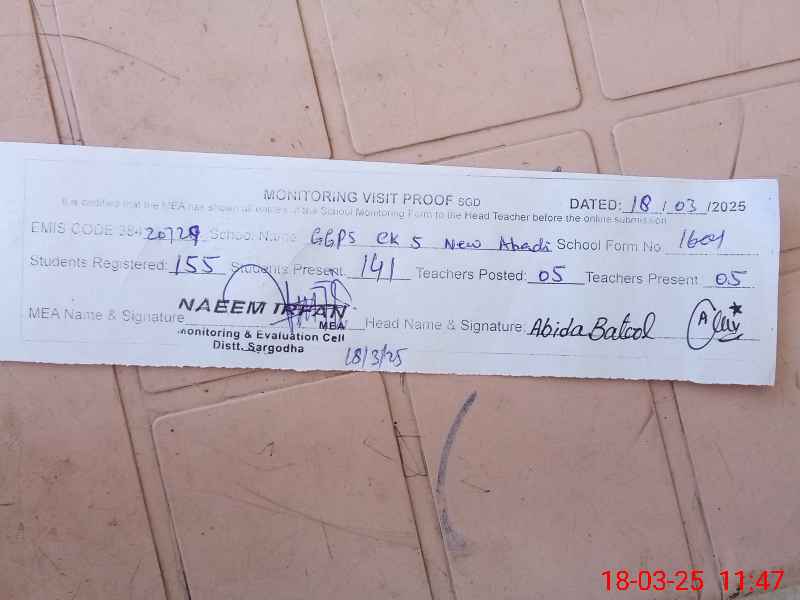 MONITORING VISIT PROOF SGD DATED: 18/03/2025
It is certified that the MEA has shown all entries of the School Monitoring Form to the Head Teacher before the online submission
EMIS CODE 38420729 School Name GGPS CK 5 New Abadi School Form No 1604
Students Registered: 155 Students Present 141 Teachers Posted: 05 Teachers Present 05
NAEEM IRFAN
MEA Name & Signature MEA Head Name & Signature: Abida Batool
Monitoring & Evaluation Cell
Distt. Sargodha
18/3/25
18-03-25 11:47